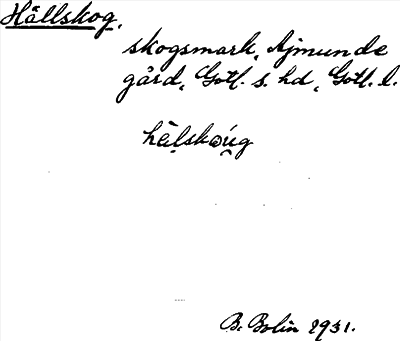 Hällskog.
skogsmark, Ajmunde
gård, Gotl. s. hd, Gotl. l.
hälskǫug
B. Bolin 1931.